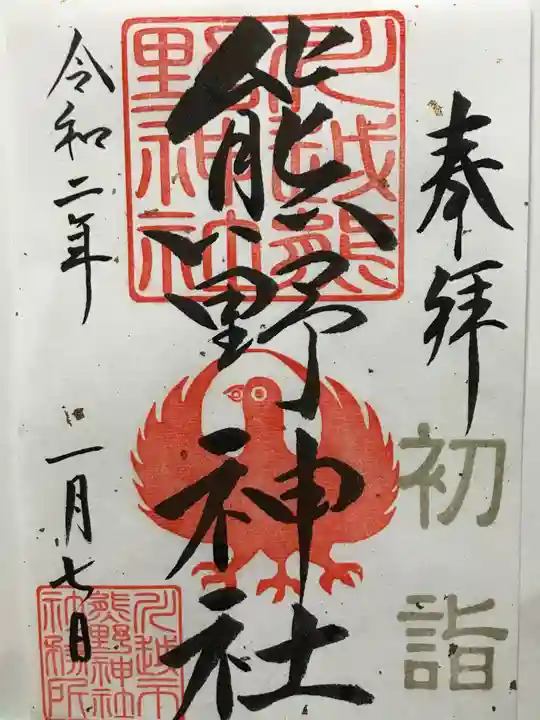 奉拝
初詣
川越熊野神社神社
熊野神社
令和二年
一月七日
川越市
熊野神社
社務所